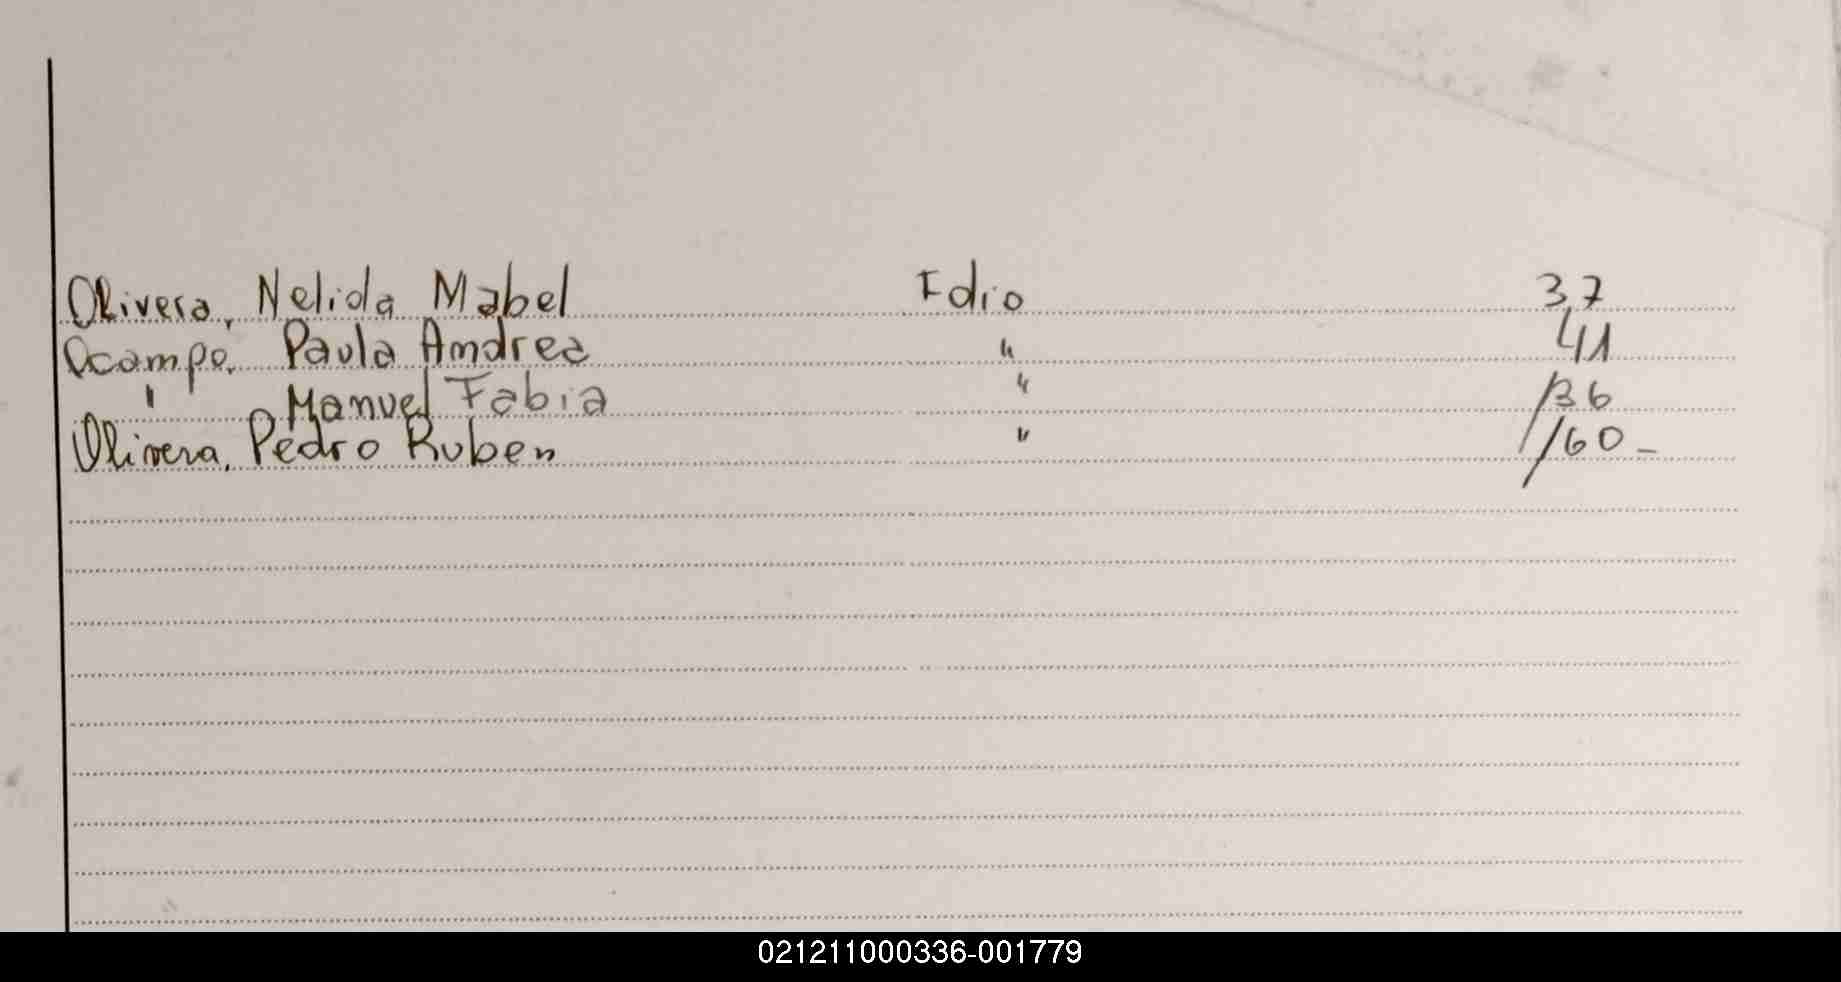 Olivera, Nelida Mabel Fdio 37
Ocampo, Paula Andrea " 41
" Manuel Fabia " 36
Olivera, Pedro Ruben " 60-
021211000336-001779